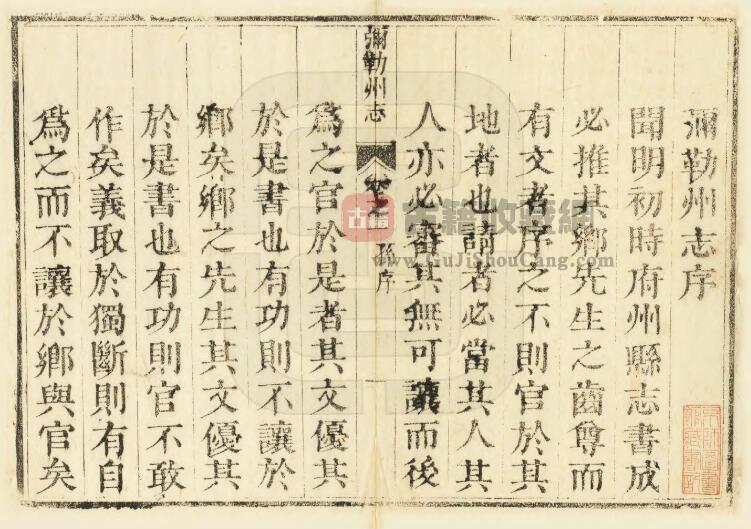 彌勒州志序
聞明初時府州縣志書成
必推其鄉先生之齒尊而
有文者序之不則官於其
地者也請者必當其人其
人亦必審其無可讓而後
彌勒州志
孫序
為之官於是者其文優其
於是書也有功則不讓於
鄉矣鄉之先生其文優其
於是書也有功則官不敢
作矣義取於獨斷則有自
為之而不讓於鄉與官矣
古籍
古籍收藏網
www.GuJiShouCang.com